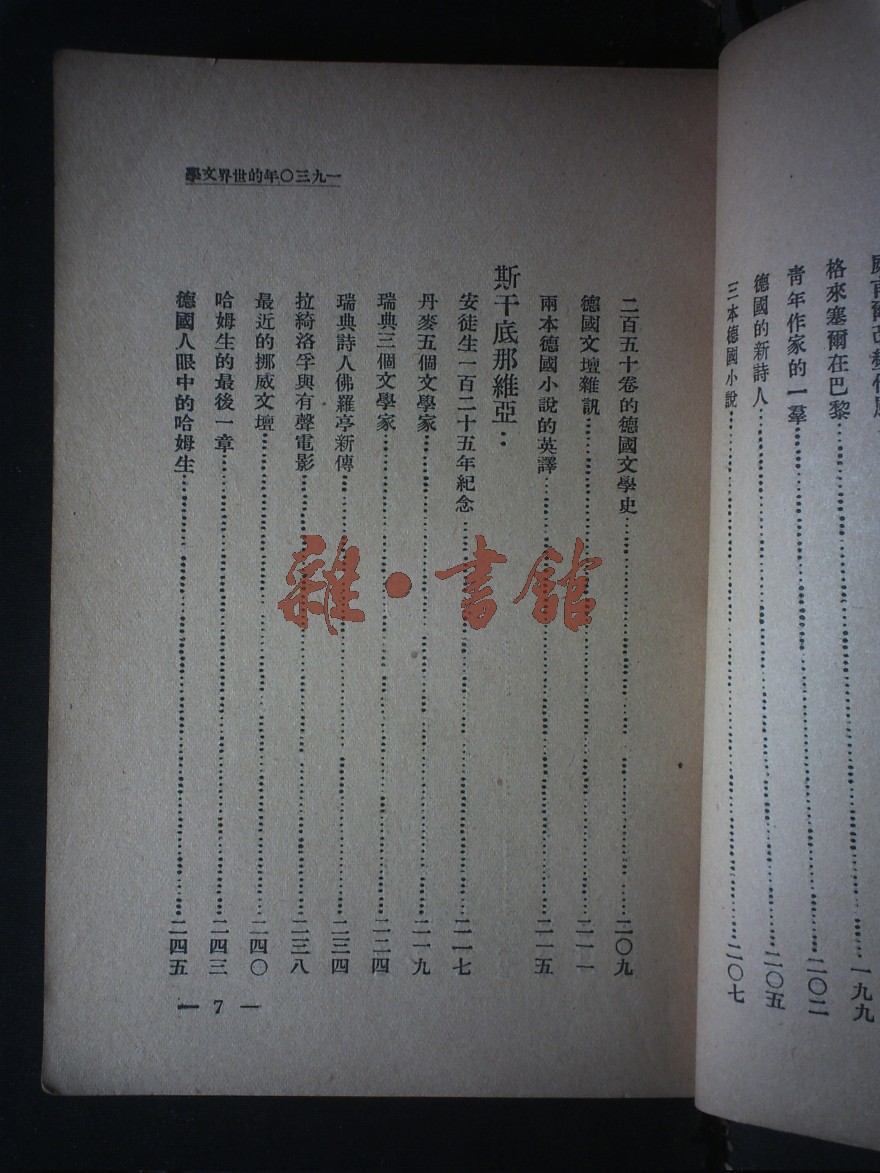 格來塞爾在巴黎……一九九
青年作家的一羣……二〇二
德國的新詩人……二〇五
三本德國小說……二〇七
一九三〇年的世界文學
二百五十卷的德國文學史……二〇九
德國文壇雜訊……二一一
兩本德國小說的英譯……二一五
斯干底那維亞：
安徒生一百二十五年紀念……二一七
丹麥五個文學家……二一九
瑞典三個文學家……二二四
瑞典詩人佛羅亭新傳……二三四
拉綺洛孚與有聲電影……二三八
最近的挪威文壇……二四〇
哈姆生的最後一章……二四三
德國人眼中的哈姆生……二四五
— 7 —
雜·書館